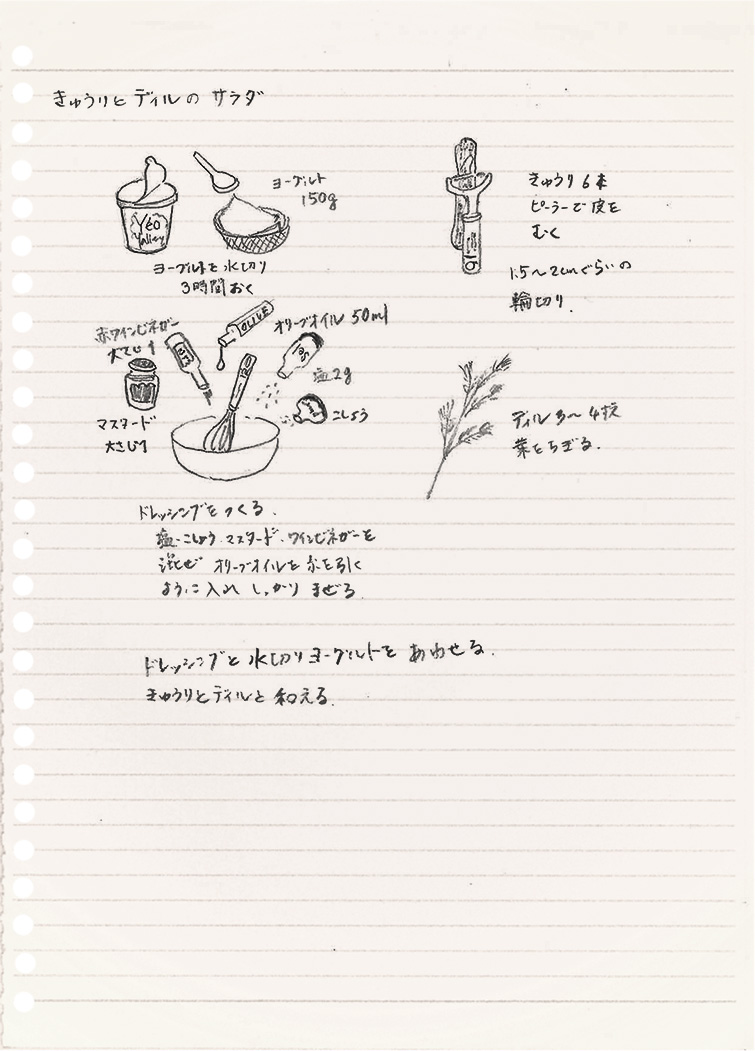 きゅうりとディルの サラダ
Yeo
Valley
ヨーグルト
150g
ヨーグルトを水切り
3時間おく
きゅうり6本
ピーラーで皮を
むく
1.5〜2cmぐらいの
輪切り.
赤ワインビネガー
大さじ1
OLIVE
オリーブオイル 50ml
塩2g
こしょう
マスタード
大さじ1
ディル3〜4枝
葉をちぎる.
ドレッシングをつくる.
塩・こしょう・マスタード・ワインビネガーを
混ぜ オリーブオイルを糸を引く
ように入れ しっかり まぜる.
ドレッシングと水切りヨーグルトを あわせる.
きゅうりとディルと和える.